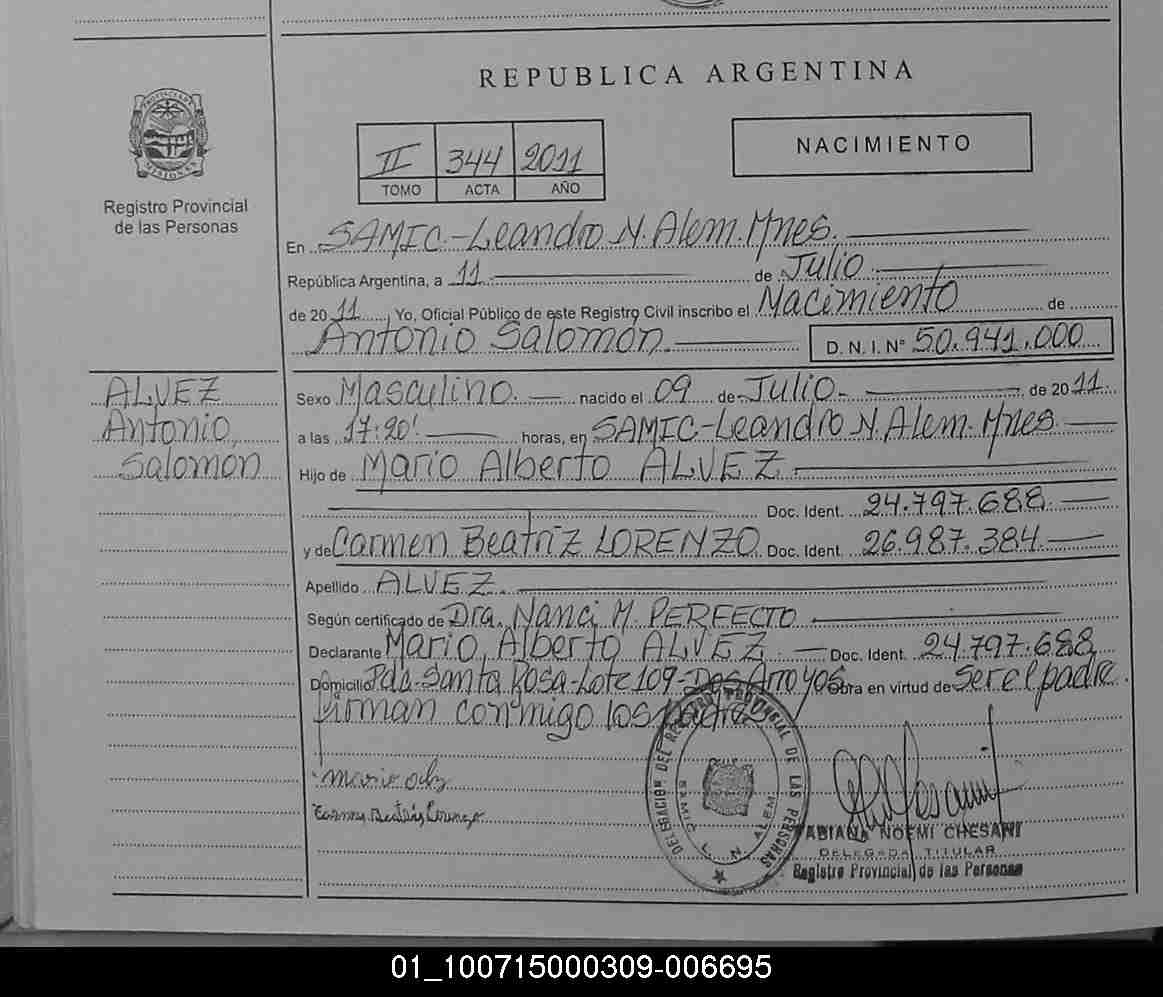 REPUBLICA ARGENTINA
PROVINCIA DE MISIONES
Registro Provincial
de las Personas
II 344 2011
TOMO ACTA AÑO
NACIMIENTO
En SAMIC.-Leandro N. Alem. Mnes.
República Argentina, a 11 de Julio
de 2011, Yo, Oficial Público de este Registro Civil inscribo el Nacimiento de
Antonio Salomón D. N. I. Nº 50.941.000
ALVEZ
Antonio,
Salomón
Sexo Masculino. nacido el 09 de Julio. de 2011.
a las 17:20' horas, en SAMIC-Leandro N. Alem. Mnes.
Hijo de Mario Alberto ALVEZ
Doc. Ident. 24.797.688
y de Carmen Beatriz LORENZO Doc. Ident. 26.987.384.
Apellido ALVEZ.
Según certificado de Dra. Nanci M. PERFECTO
Declarante Mario Alberto ALVEZ Doc. Ident. 24.797.688
Domicilio Pda-Santa Rosa-Lote 109-Dos Arroyos Obra en virtud de ser el padre.
Firman conmigo los padres
Carmen Beatriz Lorenzo
DELEGACIÓN DEL REGISTRO PROVINCIAL DE LAS PERSONAS
SAMIC L. N. ALEM
FABIANA NOEMI CHESANI
DELEGADA TITULAR
Registro Provincial de las Personas
01_100715000309-006695